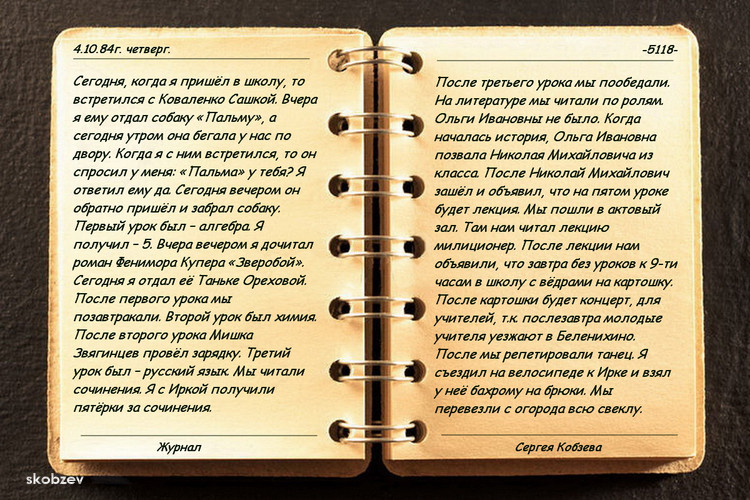 4.10.84г. четверг.
Сегодня, когда я пришёл в школу, то
встретился с Коваленко Сашкой. Вчера
я ему отдал собаку «Пальму», а
сегодня утром она бегала у нас по
двору. Когда я с ним встретился, то он
спросил у меня: «Пальма» у тебя? Я
ответил ему да. Сегодня вечером он
обратно пришёл и забрал собаку.
Первый урок был – алгебра. Я
получил – 5. Вчера вечером я дочитал
роман Фенимора Купера «Зверобой».
Сегодня я отдал её Таньке Ореховой.
После первого урока мы
позавтракали. Второй урок был химия.
После второго урока Мишка
Звягинцев провёл зарядку. Третий
урок был – русский язык. Мы читали
сочинения. Я с Иркой получили
пятёрки за сочинения.
Журнал
-5118-
После третьего урока мы пообедали.
На литературе мы читали по ролям.
Ольги Ивановны не было. Когда
началась история, Ольга Ивановна
позвала Николая Михайловича из
класса. После Николай Михайлович
зашёл и объявил, что на пятом уроке
будет лекция. Мы пошли в актовый
зал. Там нам читал лекцию
милиционер. После лекции нам
объявили, что завтра без уроков к 9-ти
часам в школу с вёдрами на картошку.
После картошки будет концерт, для
учителей, т.к. послезавтра молодые
учителя уезжают в Беленихино.
После мы репетировали танец. Я
съездил на велосипеде к Ирке и взял
у неё бахрому на брюки. Мы
перевезли с огорода всю свеклу.
Сергея Кобзева
skobzev